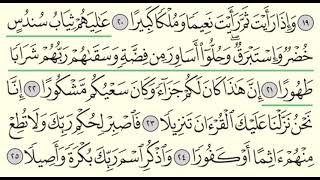 ﴿١٩﴾ وَإِذَا رَأَيْتَ ثَمَّ رَأَيْتَ نَعِيمًا وَمُلْكًا كَبِيرًا ﴿٢٠﴾ عَالِيَهُمْ ثِيَابُ سُندُسٍ
خُضْرٌ وَإِسْتَبْرَقٌ وَحُلُّوا أَسَاوِرَ مِن فِضَّةٍ وَسَقَاهُمْ رَبُّهُمْ شَرَابًا
طَهُورًا ﴿٢١﴾ إِنَّ هَٰذَا كَانَ لَكُمْ جَزَاءً وَكَانَ سَعْيُكُم مَّشْكُورًا ﴿٢٢﴾ إِنَّا
نَحْنُ نَزَّلْنَا عَلَيْكَ الْقُرْءَانَ تَنزِيلًا ﴿٢٣﴾ فَاصْبِرْ لِحُكْمِ رَبِّكَ وَلَا تُطِعْ
مِنْهُمْ ءَاثِمًا أَوْ كَفُورًا ﴿٢٤﴾ وَاذْكُرِ اسْمَ رَبِّكَ بُكْرَةً وَأَصِيلًا ﴿٢٥﴾